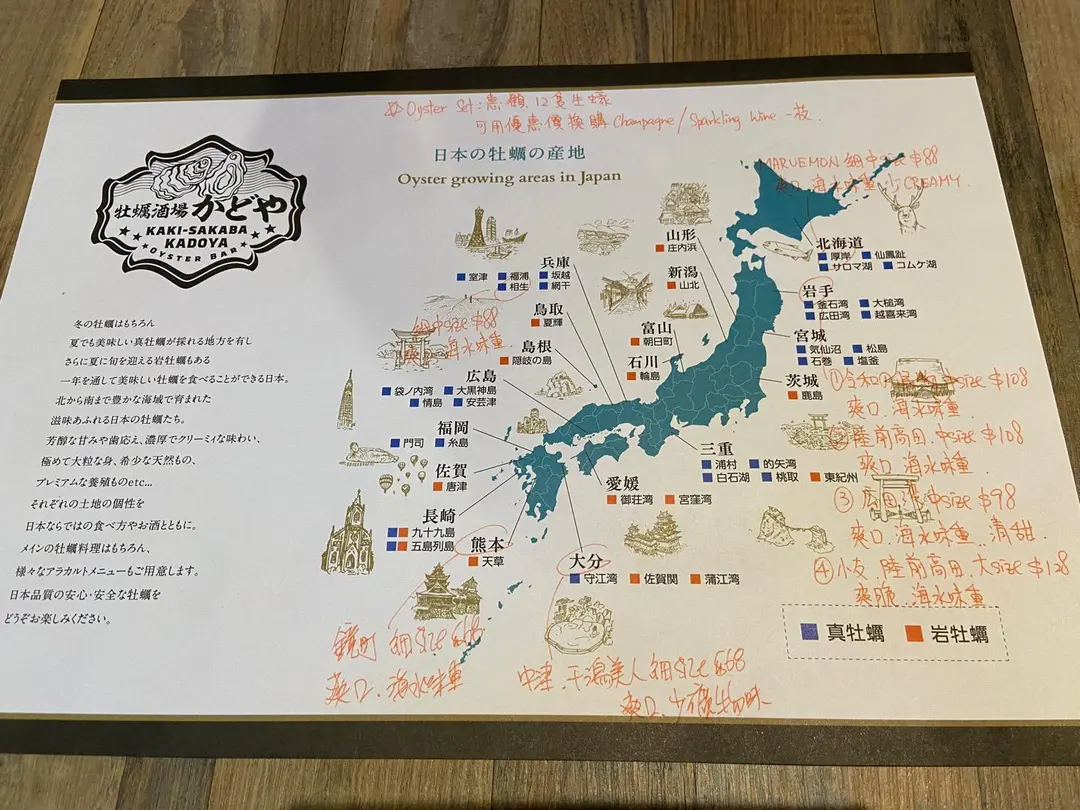 ☆ Oyster Set: 惠顧 12隻生蠔
可用優惠價換購 Champagne / Sparkling Wine 一枝.
日本の牡蠣の産地
Oyster growing areas in Japan
牡蠣酒場 かどや
KAKI-SAKABA
KADOYA
OYSTER BAR
冬の牡蠣はもちろん
夏でも美味しい真牡蠣が採れる地方を有し
さらに夏に旬を迎える岩牡蠣もある
一年を通して美味しい牡蠣を食べることができる日本。
北から南まで豊かな海域で育まれた
滋味あふれる日本の牡蠣たち。
芳醇な甘みや歯応え、濃厚でクリーミィな味わい、
極めて大粒な身、希少な天然もの、
プレミアムな養殖ものetc...
それぞれの土地の個性を
日本ならではの食べ方やお酒とともに。
メインの牡蠣料理はもちろん、
様々なアラカルトメニューもご用意します。
日本品質の安心・安全な牡蠣を
どうぞお楽しみください。
MARUEMON 細中size $88
爽口 海水味重 少 CREAMY.
北海道
厚岸 仙鳳趾
サロマ湖 コムケ湖
山形
庄内浜
新潟
山北
富山
朝日町
石川
輪島
兵庫
室津 福浦 坂越
相生 網干
細中size $88
爽口 海水味重.
鳥取
夏輝
島根
隠岐の島
広島
袋ノ内湾 大黒神島
情島 安芸津
福岡
門司 糸島
佐賀
唐津
長崎
九十九島
五島列島
熊本
天草
鏡町 細size $68
爽口. 海水味重
大分
守江湾 佐賀関 蒲江湾
中津. 干潟美人 細size $68
爽口.
愛媛
御荘湾 宮窪湾
三重
浦村 的矢湾
白石湖 桃取 東紀州
岩手
釜石湾 大槌湾
広田湾 越喜来湾
宮城
気仙沼 松島
石巻 塩釜
茨城
鹿島
① 令和 中size $108
爽口 海水味重
② 陸前高田. 中size $108
爽口 海水味重
③ 広田湾 中size $98
爽口. 海水味重 清甜
④ 小友. 陸前高田. 大size $128
爽脆. 海水味重
真牡蠣 岩牡蠣